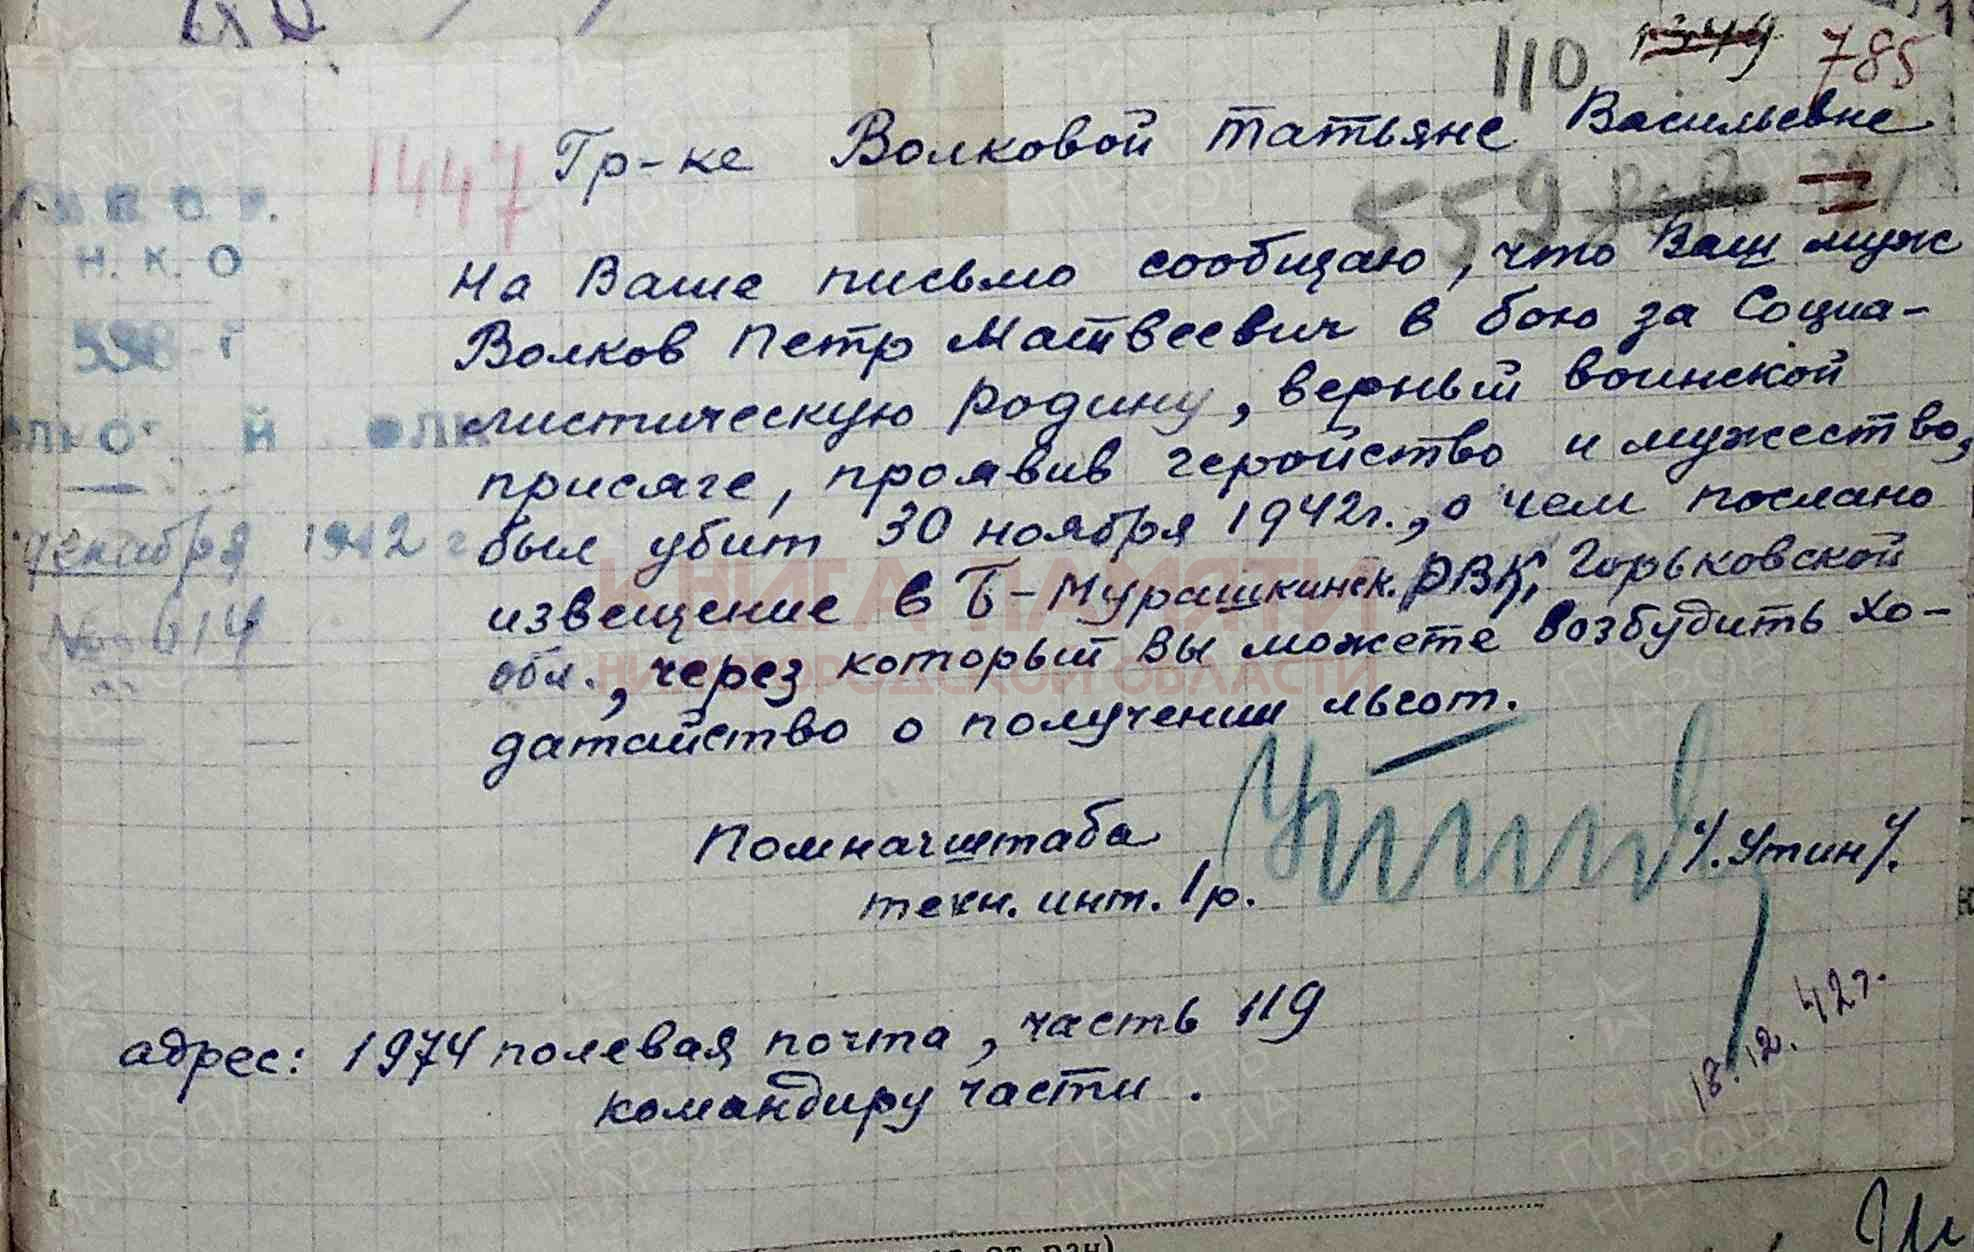 110 785
Гр-ке Волковой Татьяне Васильевне
1447
559
Н. К. О
На Ваше письмо сообщаю, что Ваш муж
Волков Петр Матвеевич в бою за Социа-
листическую родину, верный воинской
присяге, проявив геройство и мужество,
был убит 30 ноября 1942г., о чем послано
декабря 1942 г
извещение в Б-Мурашкинск. РВК, Горьковской
№ 614
обл., через который Вы можете возбудить хо-
датайство о получении льгот.
КНИГА ПАМЯТИ
НИЖЕГОРОДСКОЙ ОБЛАСТИ
Помначштаба
техн. инт. 1 р. /.Утин/.
18.12.42г.
адрес: 1974 полевая почта, часть 119
командиру части.
ПАМЯТЬ
НАРОДА